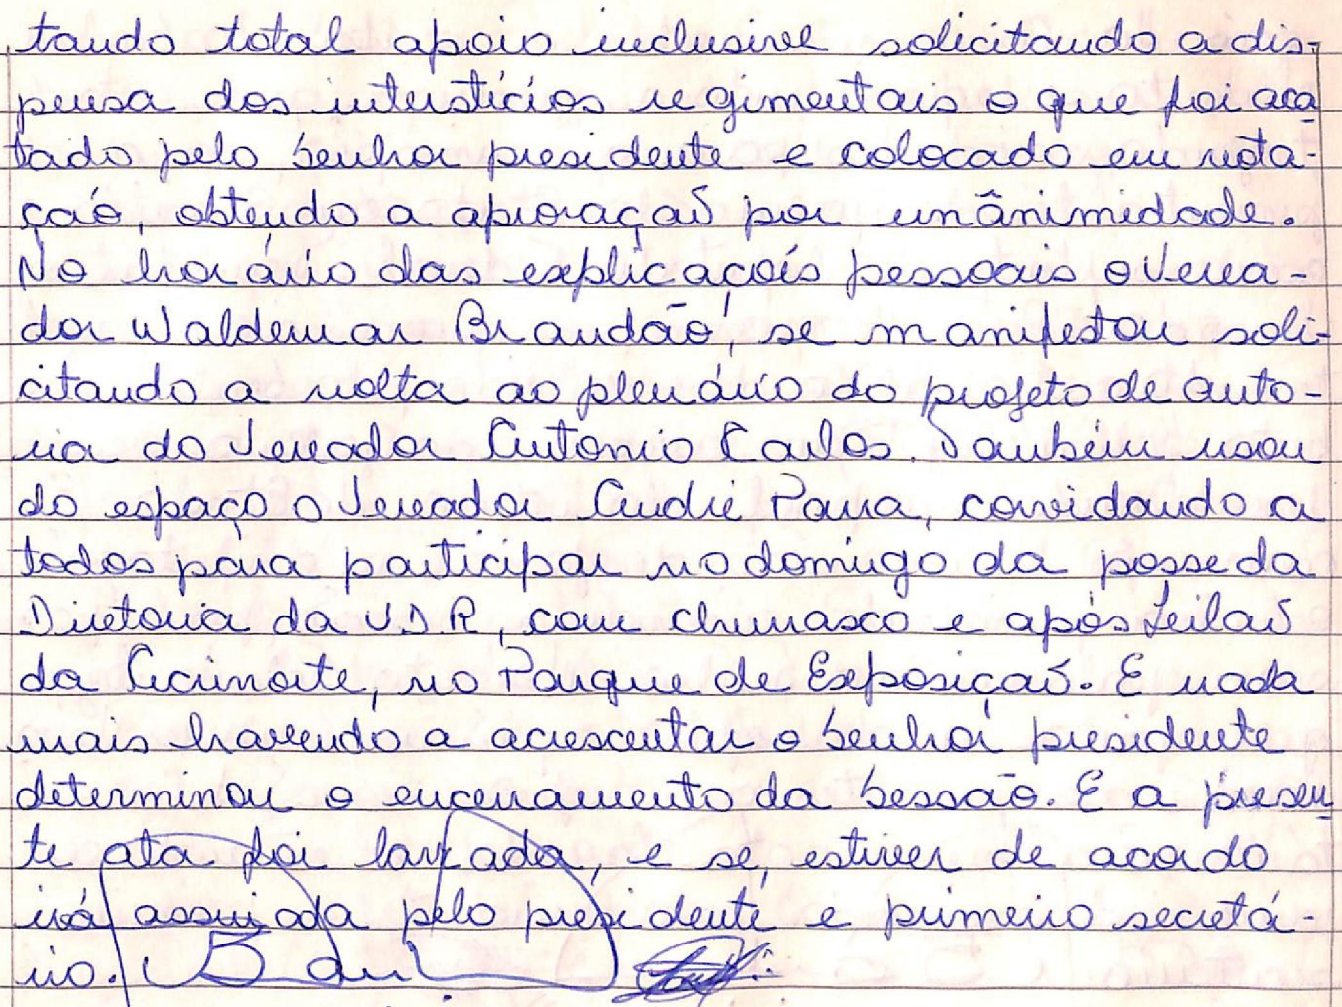 tando total apoio inclusive solicitando a dis-
pensa dos interstícios regimentais o que foi aca
tado pelo Senhor presidente e colocado em vota-
ção, obtendo a aprovação por unânimidade.
No horário das explicaçois pessoais o Verea-
dor Waldemar Brandão, se manifestou soli-
citando a volta ao plenário do projeto de auto-
ria do Vereador Antonio Carlos. Também usou
do espaço o Vereador André Parra, convidando a
todos para participar no domigo da posse da
Diretoria da U.D.R, com churrasco e após Leilão
da Acrinorte, no Parque de Exposição. E nada
mais havendo a acrescentar o Senhor presidente
determinou o encerramento da Sessão. E a presen
te ata foi lavrada, e se, estiver de acordo
irá assinada pelo presidente e primeiro secretá-
rio.